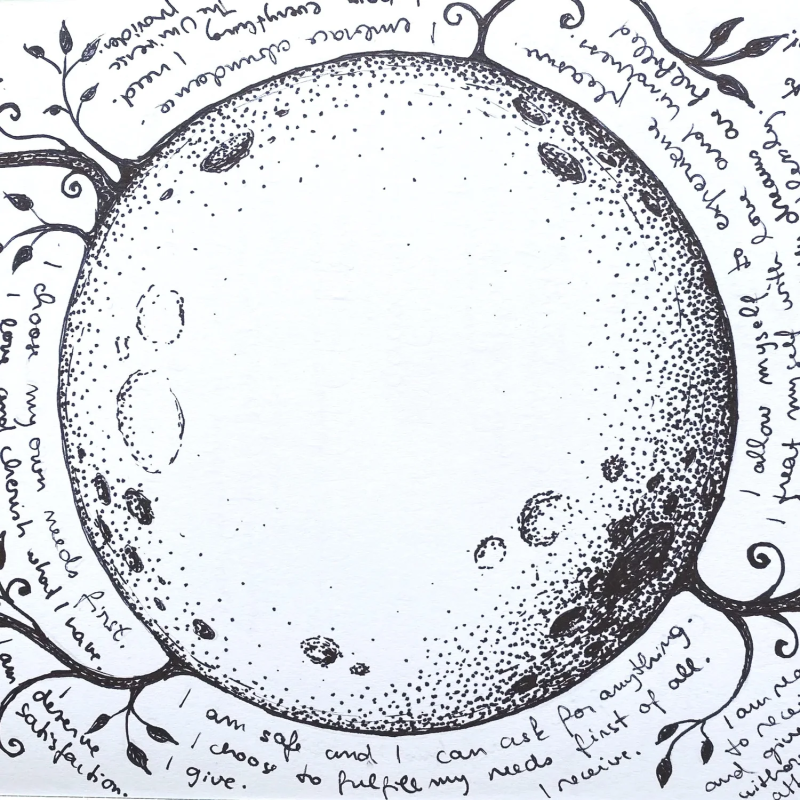 I embrace abundance
I need
everything
The Universe
provides.
pleasure
I allow myself to experience
and kindness
I treat myself with love and
dreams are
fulfilled
I choose my own needs first.
I love and cherish what I have.
I am safe and I can ask for anything.
I choose to fulfill my needs first of all.
I give.
I receive.
I am
I deserve
satisfaction.
I am
to
and